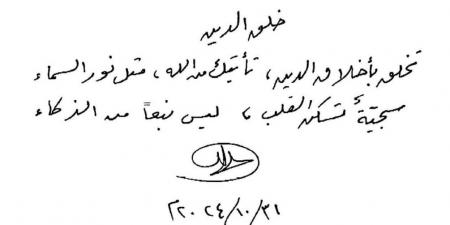 خلق الدين
تخلق بأخلاق الدين، تأتيك من الله، مثل نور السماء
سجيَّةٌ تسكن القلب، ليس نبعاً من الذكاء
٢٠٢٤/١٠/٣١م